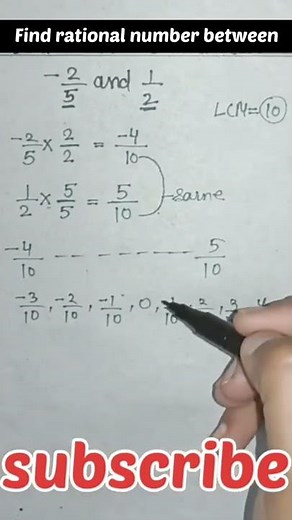 Find rational number between
-2/5 and 1/2
LCM=10
-2/5 × 2/2 = -4/10
1/2 × 5/5 = 5/10
same
-4/10 - - - - - - - - 5/10
-3/10, -2/10, -1/10, 0, 1/10
subscribe